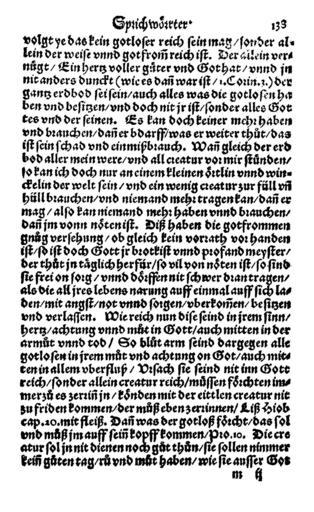 Sprichwörter. 138
volgt ye das kein gotloser reich sein mag/ sonder al-
lein der weise vnnd gotfromm ist reich ist. Der allein ver-
nügt/ Ein hertz voller güter vnd Got hat/ vnnd jn
nit anders dunckt (wie es dañ war ist/ 1. Corin. 3.) der
gantz erdbod sei sein/ auch alles was die gotlosen ha
ben vnd besitzen/ vnd doch nit jr ist/ sonder alles Got
tes vnd der seinen. Es kan doch keiner mehr haben
vnd brauchen/ dañ er bdarff/ was er weiter thůt/ das
ist sein schad vnd ein mißbrauch. Wañ gleich der erd
bod aller mein were/ vnd all creatur vor mir stůnden/
so kan ich doch nur an einem kleinen örtlin vnnd win-
ckelin der welt sein/ vnd ein wenig creatur zur füll vñ
hüll brauchen/ vnd niemand mehr tragen kan/ dañ er
mag/ also kan niemand mehr haben vnnd brauchen/
dañ jm vonn nöten ist. Diß haben die gotfrommen
gnůg versehung/ ob gleich kein vorrath vorhanden
ist/ so ist doch Gott jr brotkist vnnd profand meyster/
der thůt jn täglich herfür/ so vil von nöten ist/ so sind
sie frei on sorg/ vnnd dörffen nit schwer dran tragen/
als die all jres lebens narung auff einmal auff sich la-
den/ mit angst/ not vnnd sorgen/ vberkomen/ besitzen
vnd verlassen. Wie reich nun dise seind in jrem sinn/
hertz/ achtung vnnd můt in Gott/ auch mitten in der
armůt vnnd tod/ So blůt arm seind dargegen alle
gotlosen in jrem můt vnd achtung on Got/ auch mit-
ten in allem vberfluß/ Vrsach sie seind nit inn Gott
reich/ sonder allein creatur reich/ müssen förchten im-
merzů es zerinn jn/ könden mit der eittlen creatur nit
zu friden kommen/ der můß eben zerinnen/ Liß Hiob
cap. 20. mit fleiß. Dañ was der gotloß förcht/ das sol
vnd můß jm auff sein kopff kommen/ Pro. 10. Die cre
atur sol jn nit dienen noch gůt thůn/ sie sollen nimmer
kein gůten tag/ rů vnd můt haben/ wie sie ausser Got
m ij